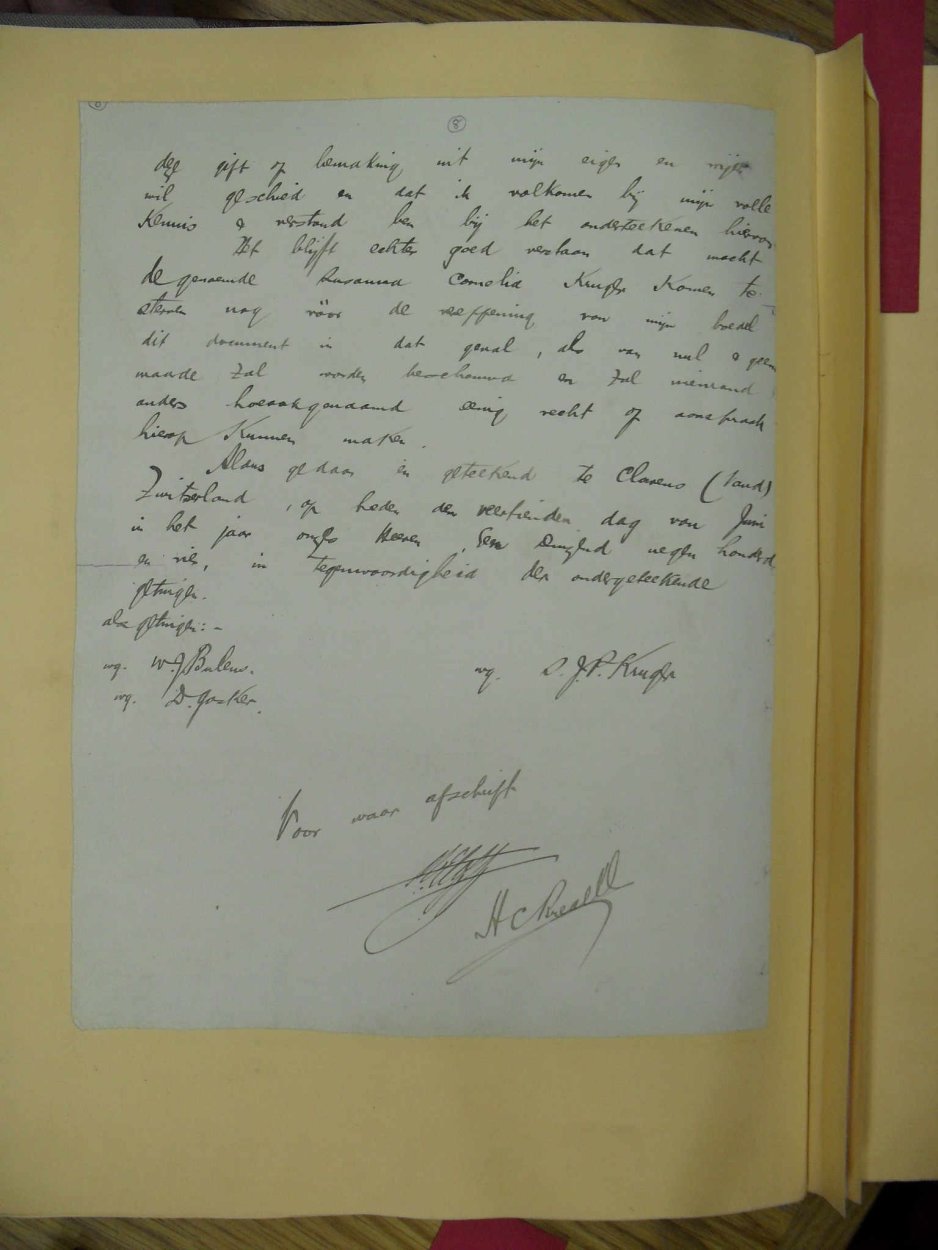 8
deze gift of bemaking uit mijn eigen en vrijen
wil geschied en dat ik volkomen bij mijn volle
Kennis & verstand ben bij het onderteekenen hiervan
Het blijft echter goed verstaan dat mocht
de genoemde Susanna Cornelia Kruger Komen te
sterven nog vóór de vereffening van mijn boedel
dit document in dat geval, als van nul & geen
waarde zal worden beschouwd en zal niemand
anders hoeookgenaamd eenig recht of aanspraak
hierop Kunnen maken.
Aldus gedaan en geteekend te Clarens (Vaud)
Zwitserland, op heden den veertienden dag van Juni
in het jaar onzes Heeren, Een Duizend negen honderd
en vier, in tegenwoordigheid der ondergeteekende
getuigen.
als getuigen:-
wg. W. J. Bulens. wg. S. J. P. Kruger
wg. D. Jacker.
Voor waar afschrift